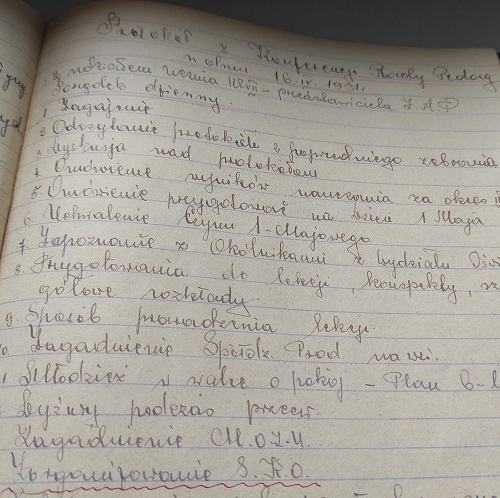 Protokół z Konferencji Rady Pedag
z dnia 16.IV.1951.
z udziałem ucznia kl. VII – przedstawiciela Z.M.P
Porządek dzienny.
1. Zagajenie
2. Odczytanie protokółu z poprzedniego zebrania
3. Dyskusja nad protokółem
4. Omówienie wyników nauczania za okres III
5. Omówienie przygotowań na dzień 1 Maja
6. Uchwalenie Czynu 1-Majowego.
7. Zapoznanie z Okólnikami z Wydziału Ośw
8. Przygotowania do lekcji, konspekty, sz
gółowe rozkłady.
9. Sposób prowadzenia lekcji.
Zagadnienie Spółdz. Prod. na wsi.
Młodzież w walce o pokój – Plan 6-l
Dyżury podczas przerw.
Zagadnienie
Zorganizowanie S.K.O.